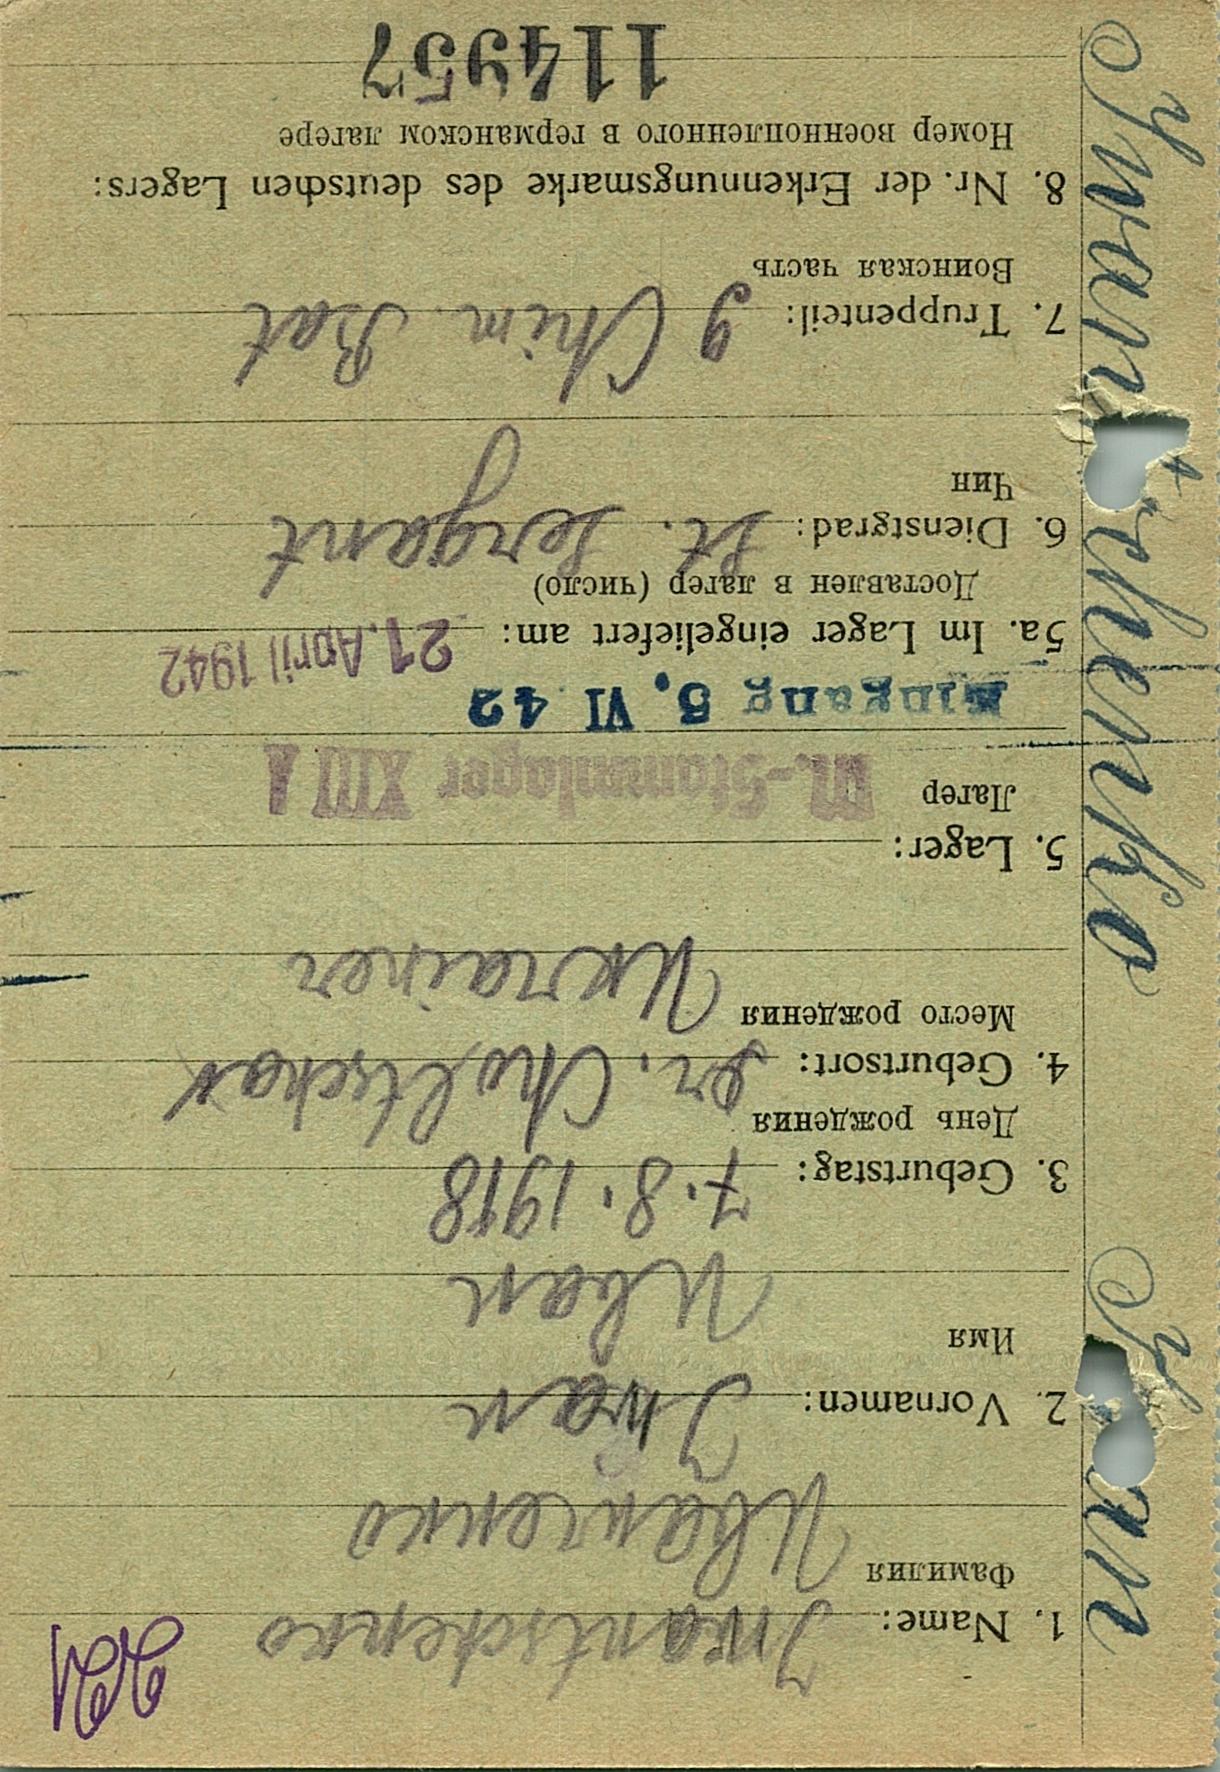 1. Name: Iwantschenko
Фамилия Иванченко
2. Vornamen: Iwan
Имя Иван
3. Geburtstag: 7.8.1918
День рождения
4. Geburtsort: gr. Choltschax
Место рождения Ukrainer
5. Lager:
Лагер M.-Stammlager XIII A
Eingang 5. VI 42
5a. Im Lager eingeliefert am: 21. April 1942
Доставлен в лагер (число)
6. Dienstgrad: St. Sergant
Чин
7. Truppenteil: 9 Chim. Bat
Воинская часть
8. Nr. der Erkennungsmarke des deutschen Lagers:
Номер военнопленного в германском лагере
114957